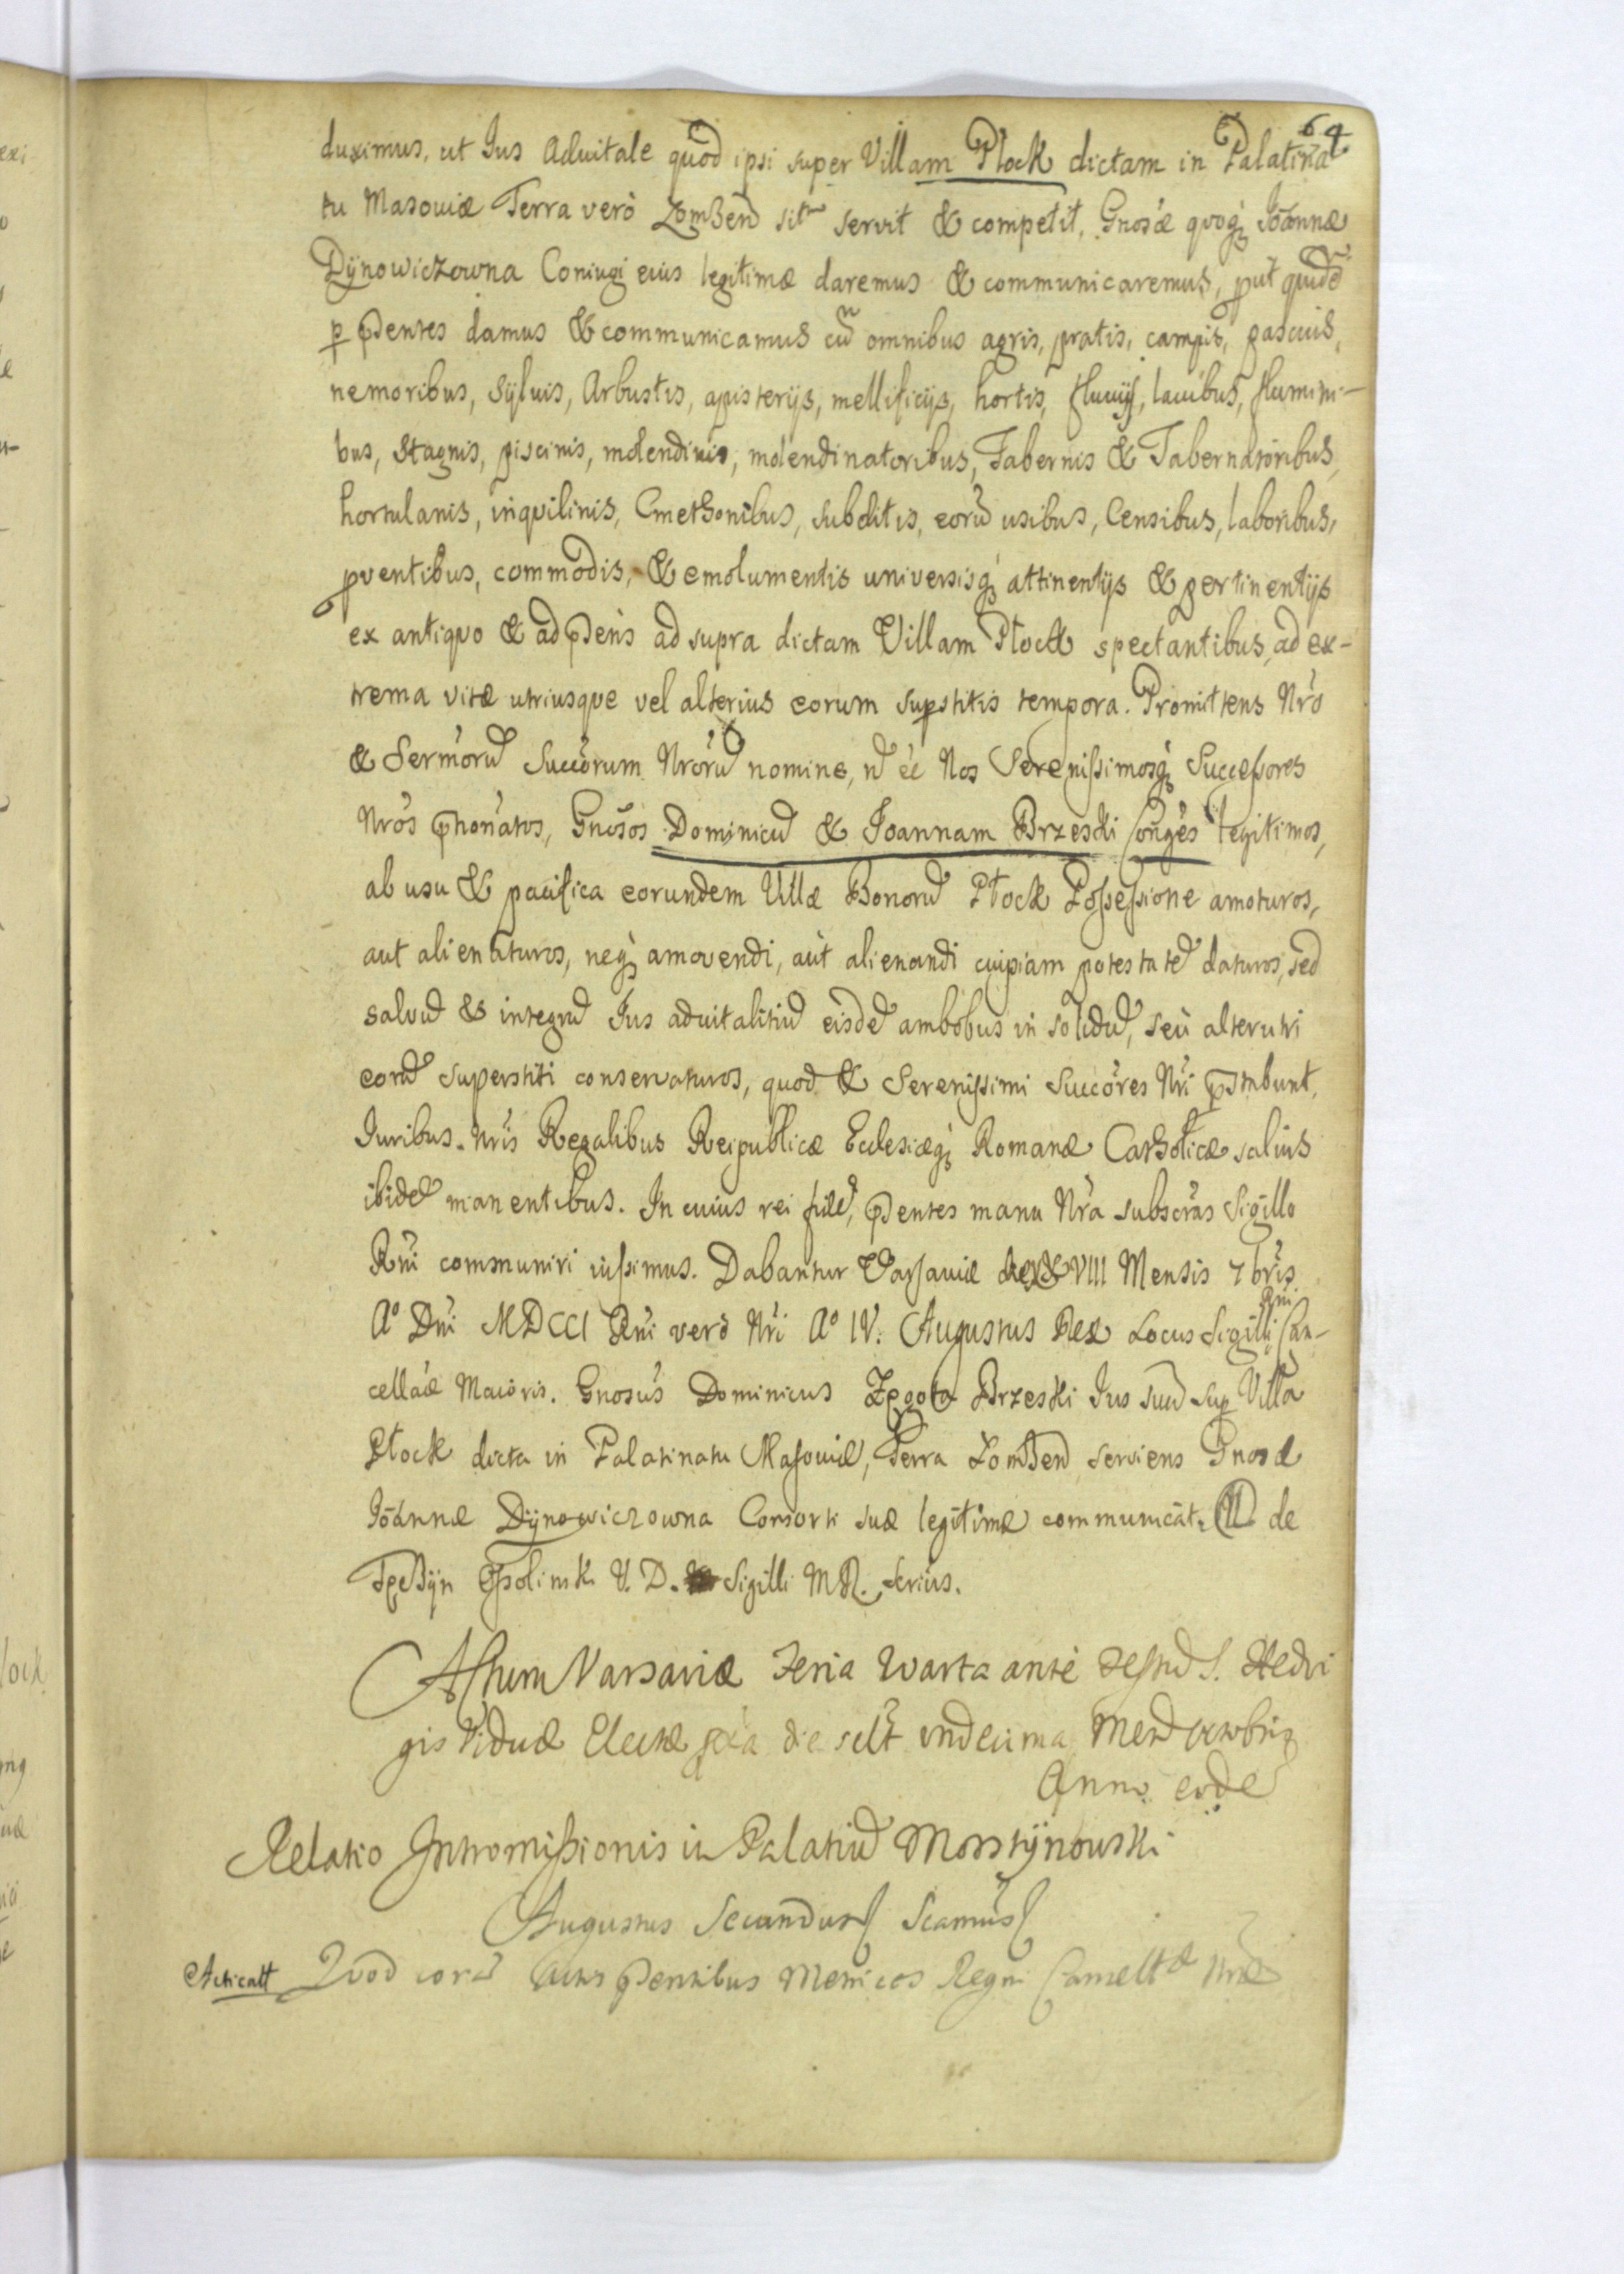 64
duximus, ut Ius Advitale quod ipsi super Villam Płock dictam in Palatina
tu Masoviæ Terra verò Łomzen sit servit & competit, Gnosæ quoq; Joannæ
Dÿnowiczowna Coniugi eius legitimæ daremus & communicaremus, put quidē
p̱ pn̄tes damus & communicamus cū omnibus agris, pratis, campis, pascuis,
nemoribus, Sÿluis, Arbustis, apisterijs, mellificijs, hortis, fluuijs, lacubus, flumini-
bus, Stagnis, piscinis, molendinis, molendinatoribus, Tabernis & Tabernatoribus,
hortulanis, inqvilinis, Cmethonibus, subditis, eorū usibus, Censibus, laboribus,
pventibus, commodis, & emolumentis universisq; attinentijs & pertinentijs
ex antiqvo & ad pn̄s ad supra dictam Villam Płock spectantibus, ad ex-
trema vitæ utriusque vel alterius eorum supstitis tempora. Promittens Nrō
& Sermorū Succōrum Nrōrū nomine, nō eē Nos Serenissimosq; Successores
Nrōs phonātos, Gnosos Dominicū & Joannam Brzeski Conḡes legitimos,
ab usu & pacifica eorundem Villæ Bonorū Płock Possessione amoturos,
aut alienaturos, neq; amovendi, aut alienandi cuipiam potestatē daturos, sed
salvū & integrū Ius advitalitiū eisdē ambobus in solidū, seù alterutri
eorū superstiti conservaturos, quod & Serenissimi Succōres Nrī pstabunt,
Iuribus Nrīs Regalibus Reipublicæ Ecclesiæq; Romanæ Catholicæ salvis
ibidē manentibus. In cuius rei fidē, pn̄tes manu Nrā subscrās Sigillo
Rnī communiri iussimus. Dabantur Varsaviæ die VIII Mensis 7brīs
Aº Dnī MDCCI Rnī verò Nrī Aº IV. Augustus Rex Locus Sigilli Rnī Can-
cellāe Maioris. Gnosūs Dominicus Zegota Brzeski Ius suū sup Villā
Płock dicta in Palatinatu Masoviæ, Terra Łomzen serviens Gnosæ
Jōannæ Dÿnowiczowna Consorti suæ legitimæ communicat. de
Sigilli M R. Srīus.
Actum Varsaviæ Feria Quarta antè Festū S. Hedvi
gis Viduæ Electæ pxā die scilt undecima Mens Octobris
Anno eodē
Relatio Intromissionis in Palatiū Morstÿnowski
Augustus Secundus Scamus
Acticatt Quod corā Actis pn̄tibus Metrices Regni Cancell Nræ